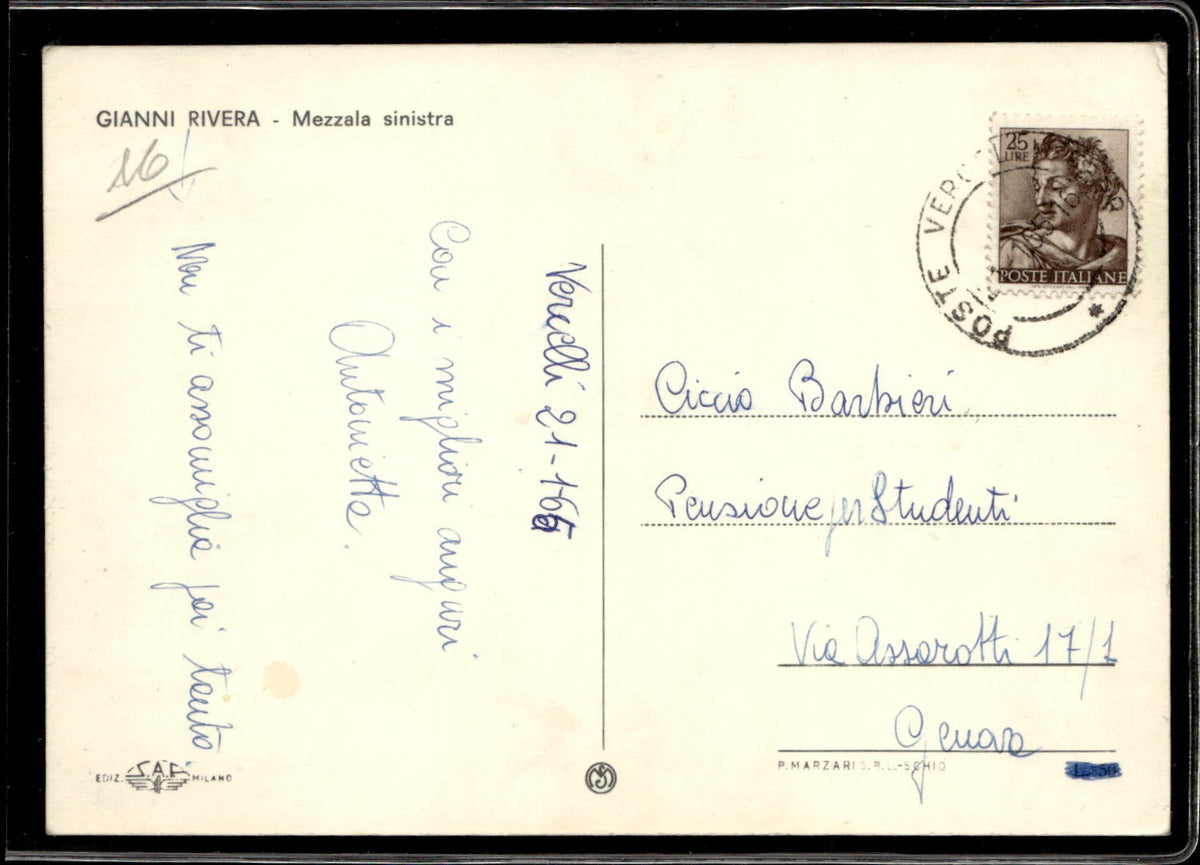 GIANNI RIVERA - Mezzala sinistra
16
Vercelli 21-1-65
Con i migliori auguri
Antonietta.
Non ti assomiglia poi tanto
25
LIRE
POSTE ITALIANE
POSTE VERCELLI
Ciccio Barbieri
Pensione per Studenti
Via Assarotti 17/1
Genova
EDIZ. S.A.F. MILANO
P. MARZARI S.R.L.-SCHIO
L. 50